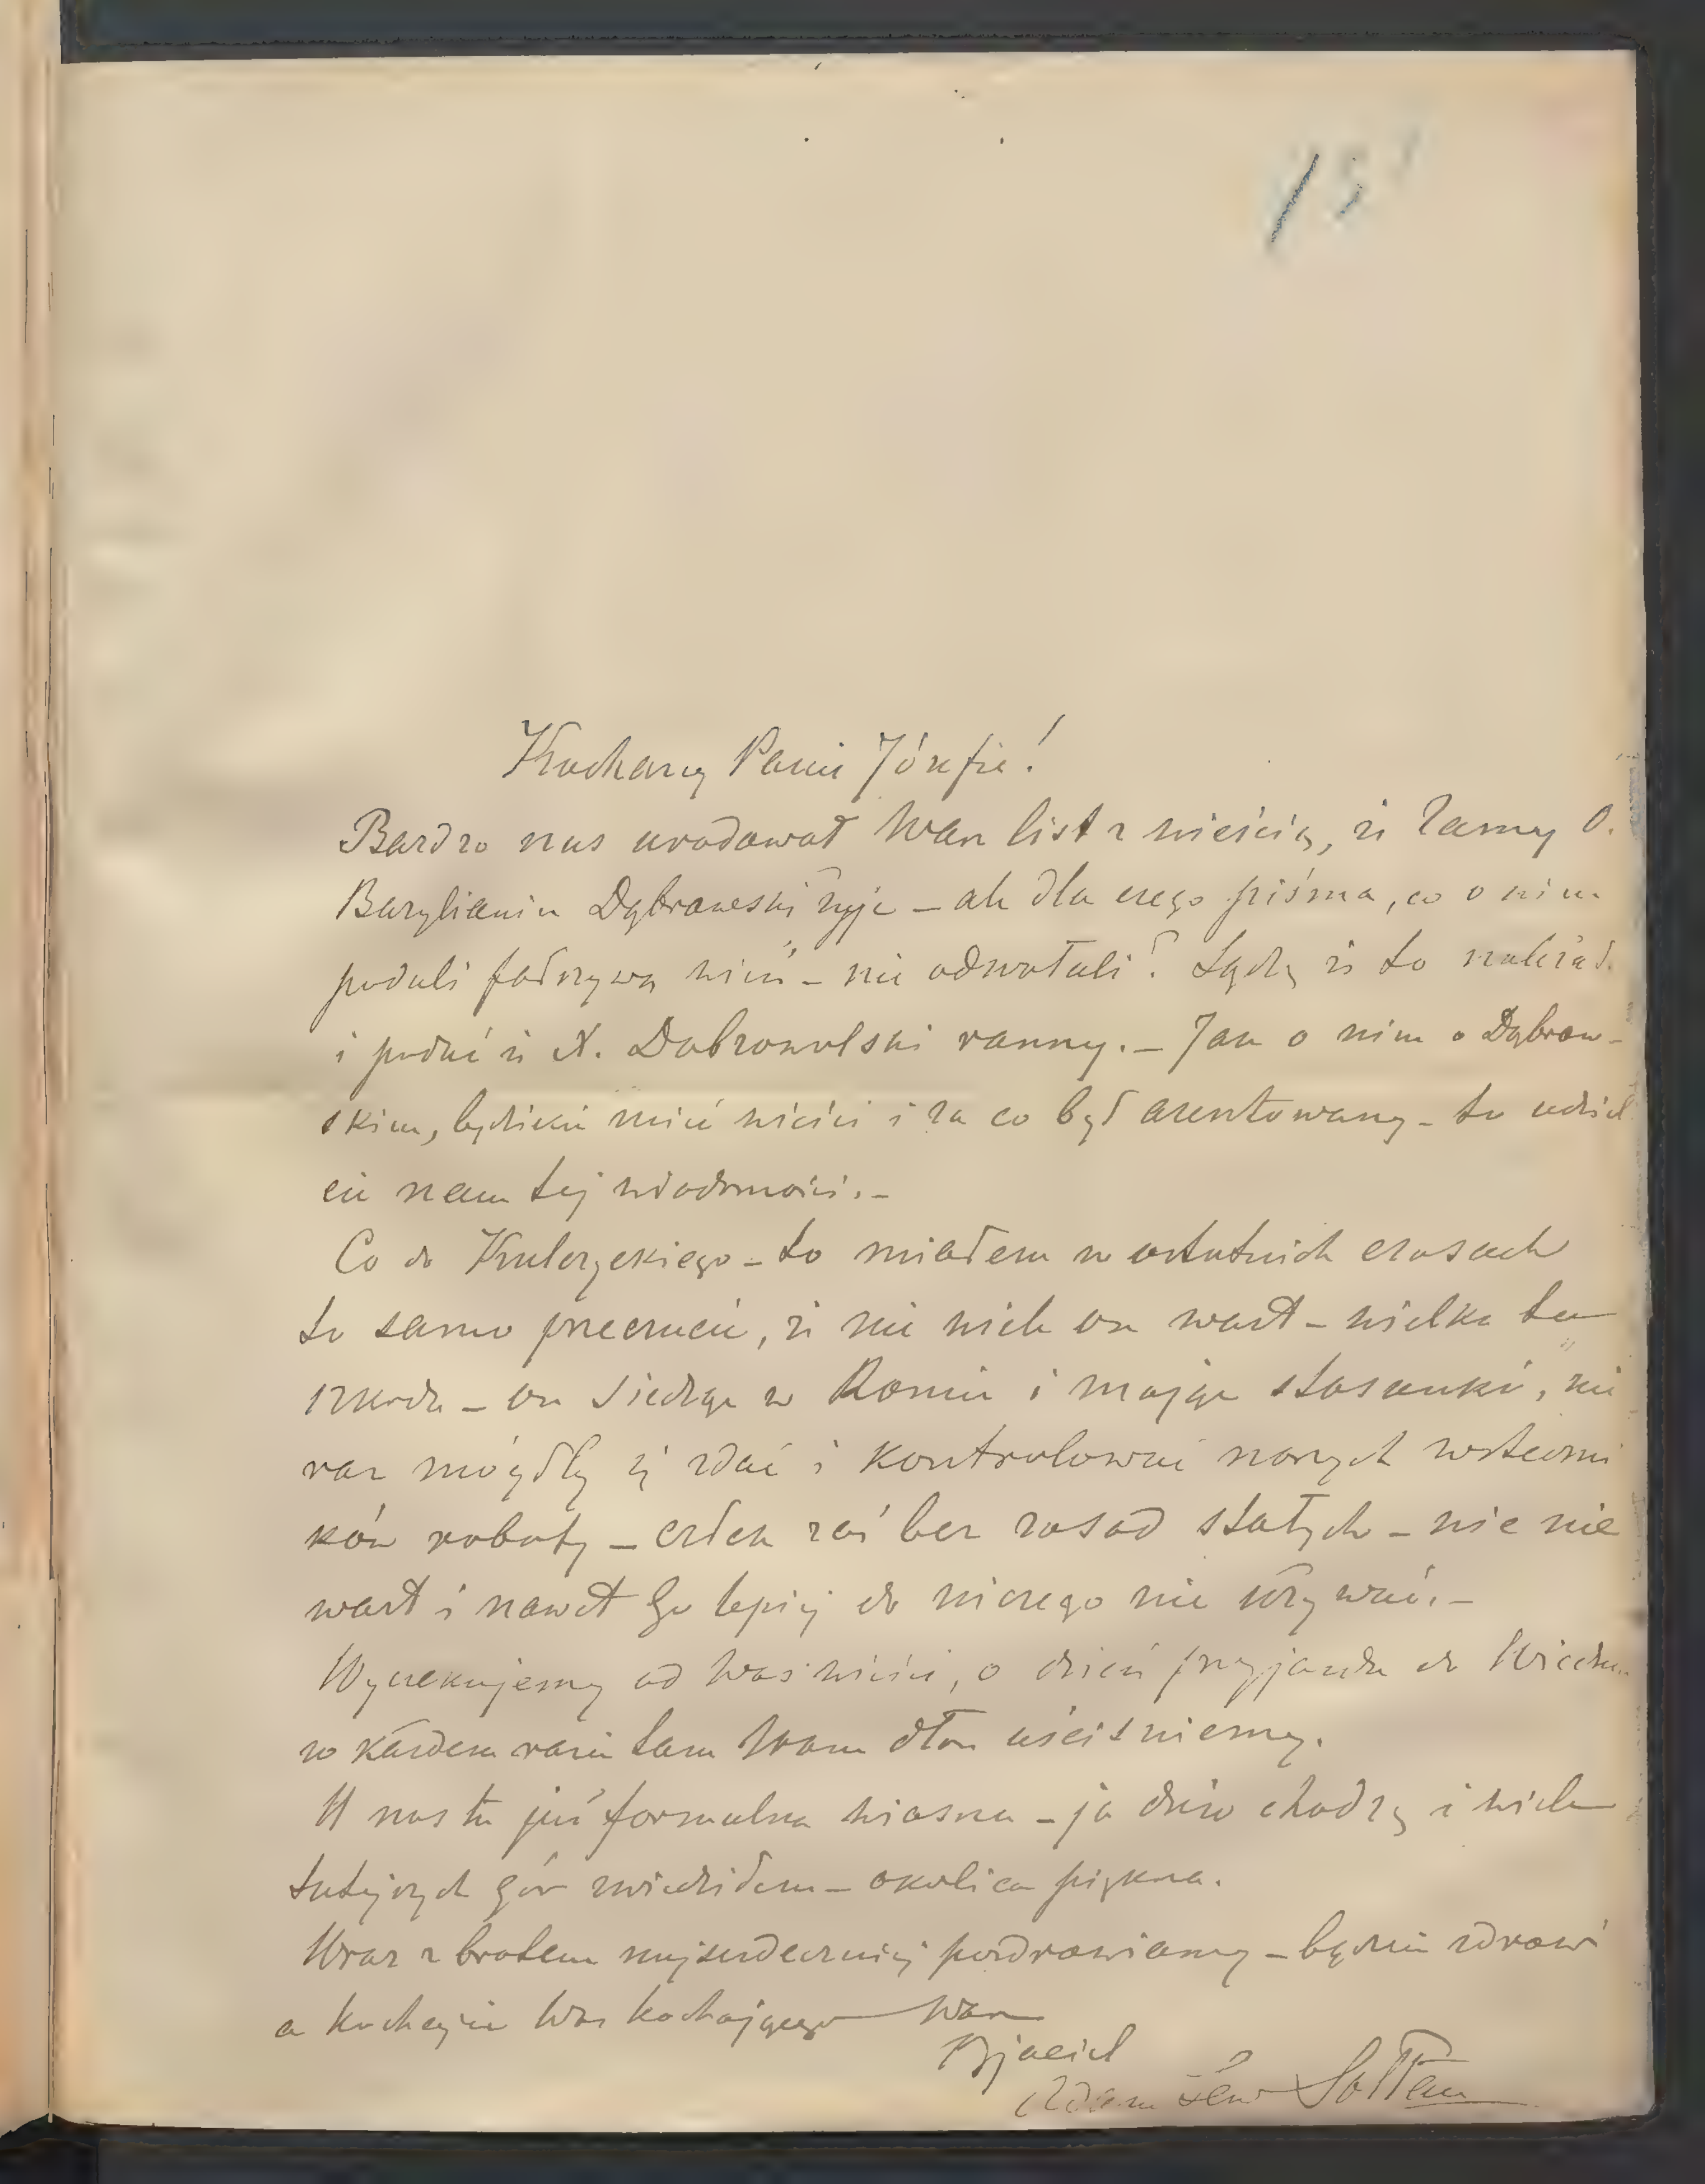 15
Kochany Panie Józefie!
Bardzo nas uradował Wasz list z wieścią, że zacny O.
Bazylianin Dąbrowski żyje – ale dla czego pisma, co o nim
podali fałszywą wieść – nie odwołali? Sądzę iż to należał.
i podać iż X. Dobrowolski ranny. – Jak o nim o Dąbrow-
skim, będziecie mieć wieści i za co był aresztowany – to udziel
cie nam tej wiadomości. –
Co do Kulczyckiego – to miałem w ostatnich czasach
to samo przeczucie, że nie wiele on wart – wielka to
szkoda – on siedząc w Romie i mając stosunki, nie
raz mógłby się zdać i kontrolować naszych wsteczni
ków roboty – człek zaś bez zasad stałych – nic nie
wart i nawet Go lepiej do niczego nie używać. –
Wyczekujemy od Was wieści, o dzień przyjazdu do Wiednia
w każdem razie tam Wam dłoń uściśniemy.
U nas tu już formalna wiosna – ja dużo chodzę i wiele
tutejszych gór zwiedziłem – okolica piękna.
Wraz z bratem najserdeczniej pozdrawiamy – bądźcie zdrowi
a kochajcie Was kochającego Wasz
Pzyjaciel
Adam Lew Sołtan